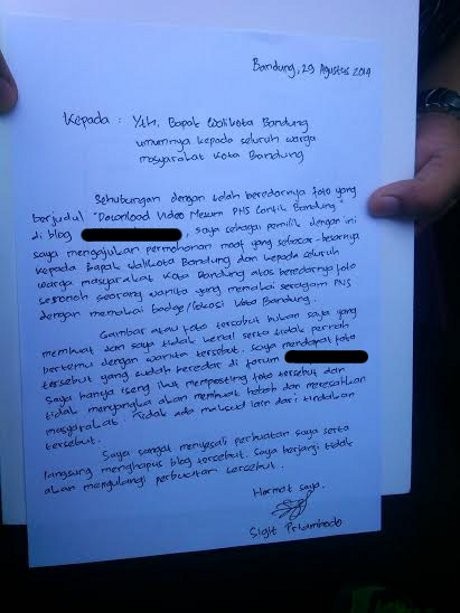 Bandung, 29 Agustus 2014
Kepada : Yth. Bapak Walikota Bandung
umumnya kepada seluruh warga
masyarakat Kota Bandung
Sehubungan dengan telah beredarnya foto yang
berjudul "Download Video Mesum PNS Cantik Bandung"
di blog , saya sebagai pemilik dengan ini
saya mengajukan permohonan maaf yang sebesar-besarnya
kepada Bapak Walikota Bandung dan kepada seluruh
warga masyarakat Kota Bandung atas beredarnya foto
seronoh seorang wanita yang memakai seragam PNS
dengan memakai badge/lokasi Kota Bandung.
Gambar atau foto tersebut bukan saya yang
membuat dan saya tidak kenal serta tidak pernah
bertemu dengan wanita tersebut. Saya mendapat foto
tersebut yang sudah beredar di forum
Saya hanya iseng ikut memposting foto tersebut dan
tidak menyangka akan membuat heboh dan meresahkan
masyarakat. Tidak ada maksud lain dari tindakan
tersebut.
Saya sangat menyesali perbuatan saya serta
langsung menghapus blog tersebut. Saya berjanji tidak
akan mengulangi perbuatan tersebut.
Hormat saya.
Sigit Priambodo